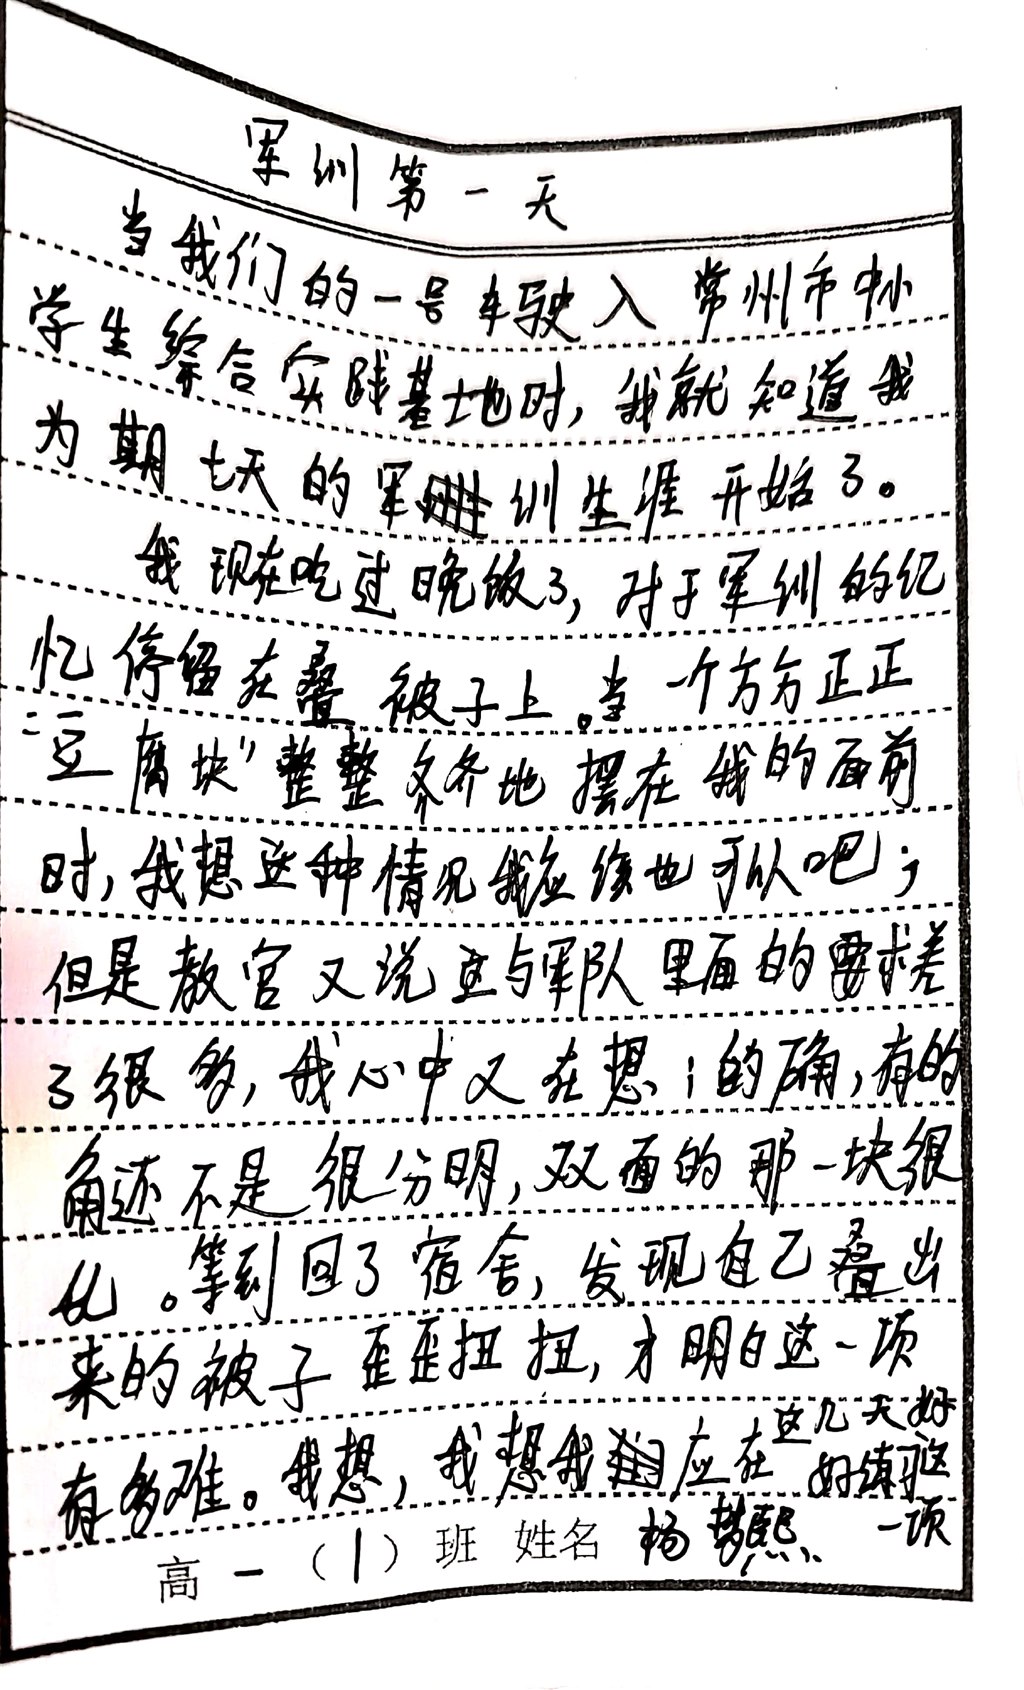 军训第一天
当我们的一号车驶入常州市中小
学生综合实践基地时,我就知道我
为期七天的军训生涯开始了。
我现在吃过晚饭了,对于军训的记
忆停留在叠被子上。当一个方方正正
“豆腐块”整整齐齐地摆在我的面前
时,我想这种情况我应该也可以吧;
但是教官又说这与军队里面的要求差
了很多,我心中又在想;的确,有的
角还不是很分明,双面的那一块很
。等到回了宿舍,发现自己叠出
来的被子歪歪扭扭,才明白这一项
有多难。我想,我想我应在这几天好
好练习这
一项
高一(1)班 姓名 杨梦熙